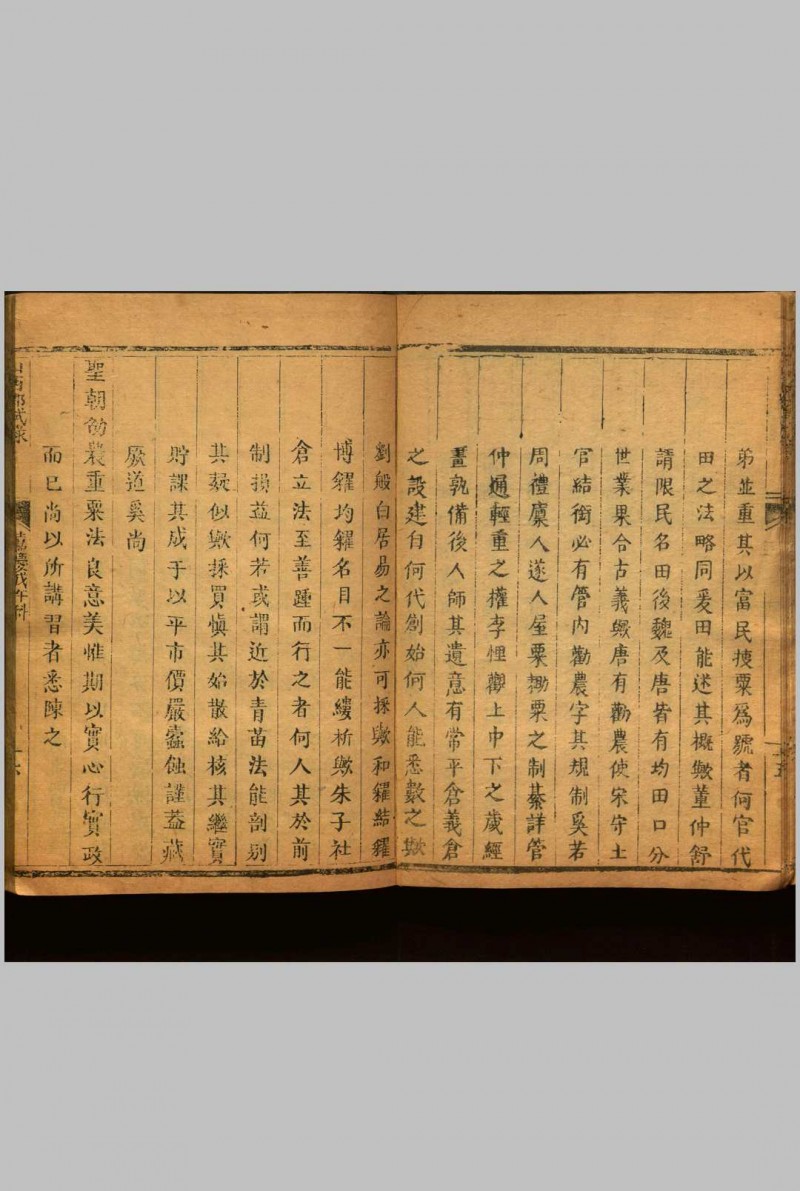 弟並重其以富民捜粟爲號者何官代
田之法略同爰田能述其概歟董仲舒
請限民名田後魏及唐皆有均田口分
世業果合古義歟唐有勸農使宋守土
官結銜必有管內勸農字其規制奚若
周禮廩人遂人屋粟耡粟之制綦詳管
仲通輕重之權李悝觀上中下之歲經
畫孰備後人師其遺意有常平倉義倉
之設建自何代創始何人能悉數之歟
劉般白居易之論亦可採歟和糴結糴
博糴均糴名目不一能縷析歟朱子社
倉立法至善踵而行之者何人其於前
制損益何若或謂近於青苗法能剖别
其疑似歟採買愼其始散給核其繼實
貯課其成于以平市價嚴蠹蝕謹蓋藏
厥道奚尚
聖朝勸農重粟法良意美惟期以實心行實政
而已尚以所講習者悉陳之
山西鄕試錄
嘉慶戊午科